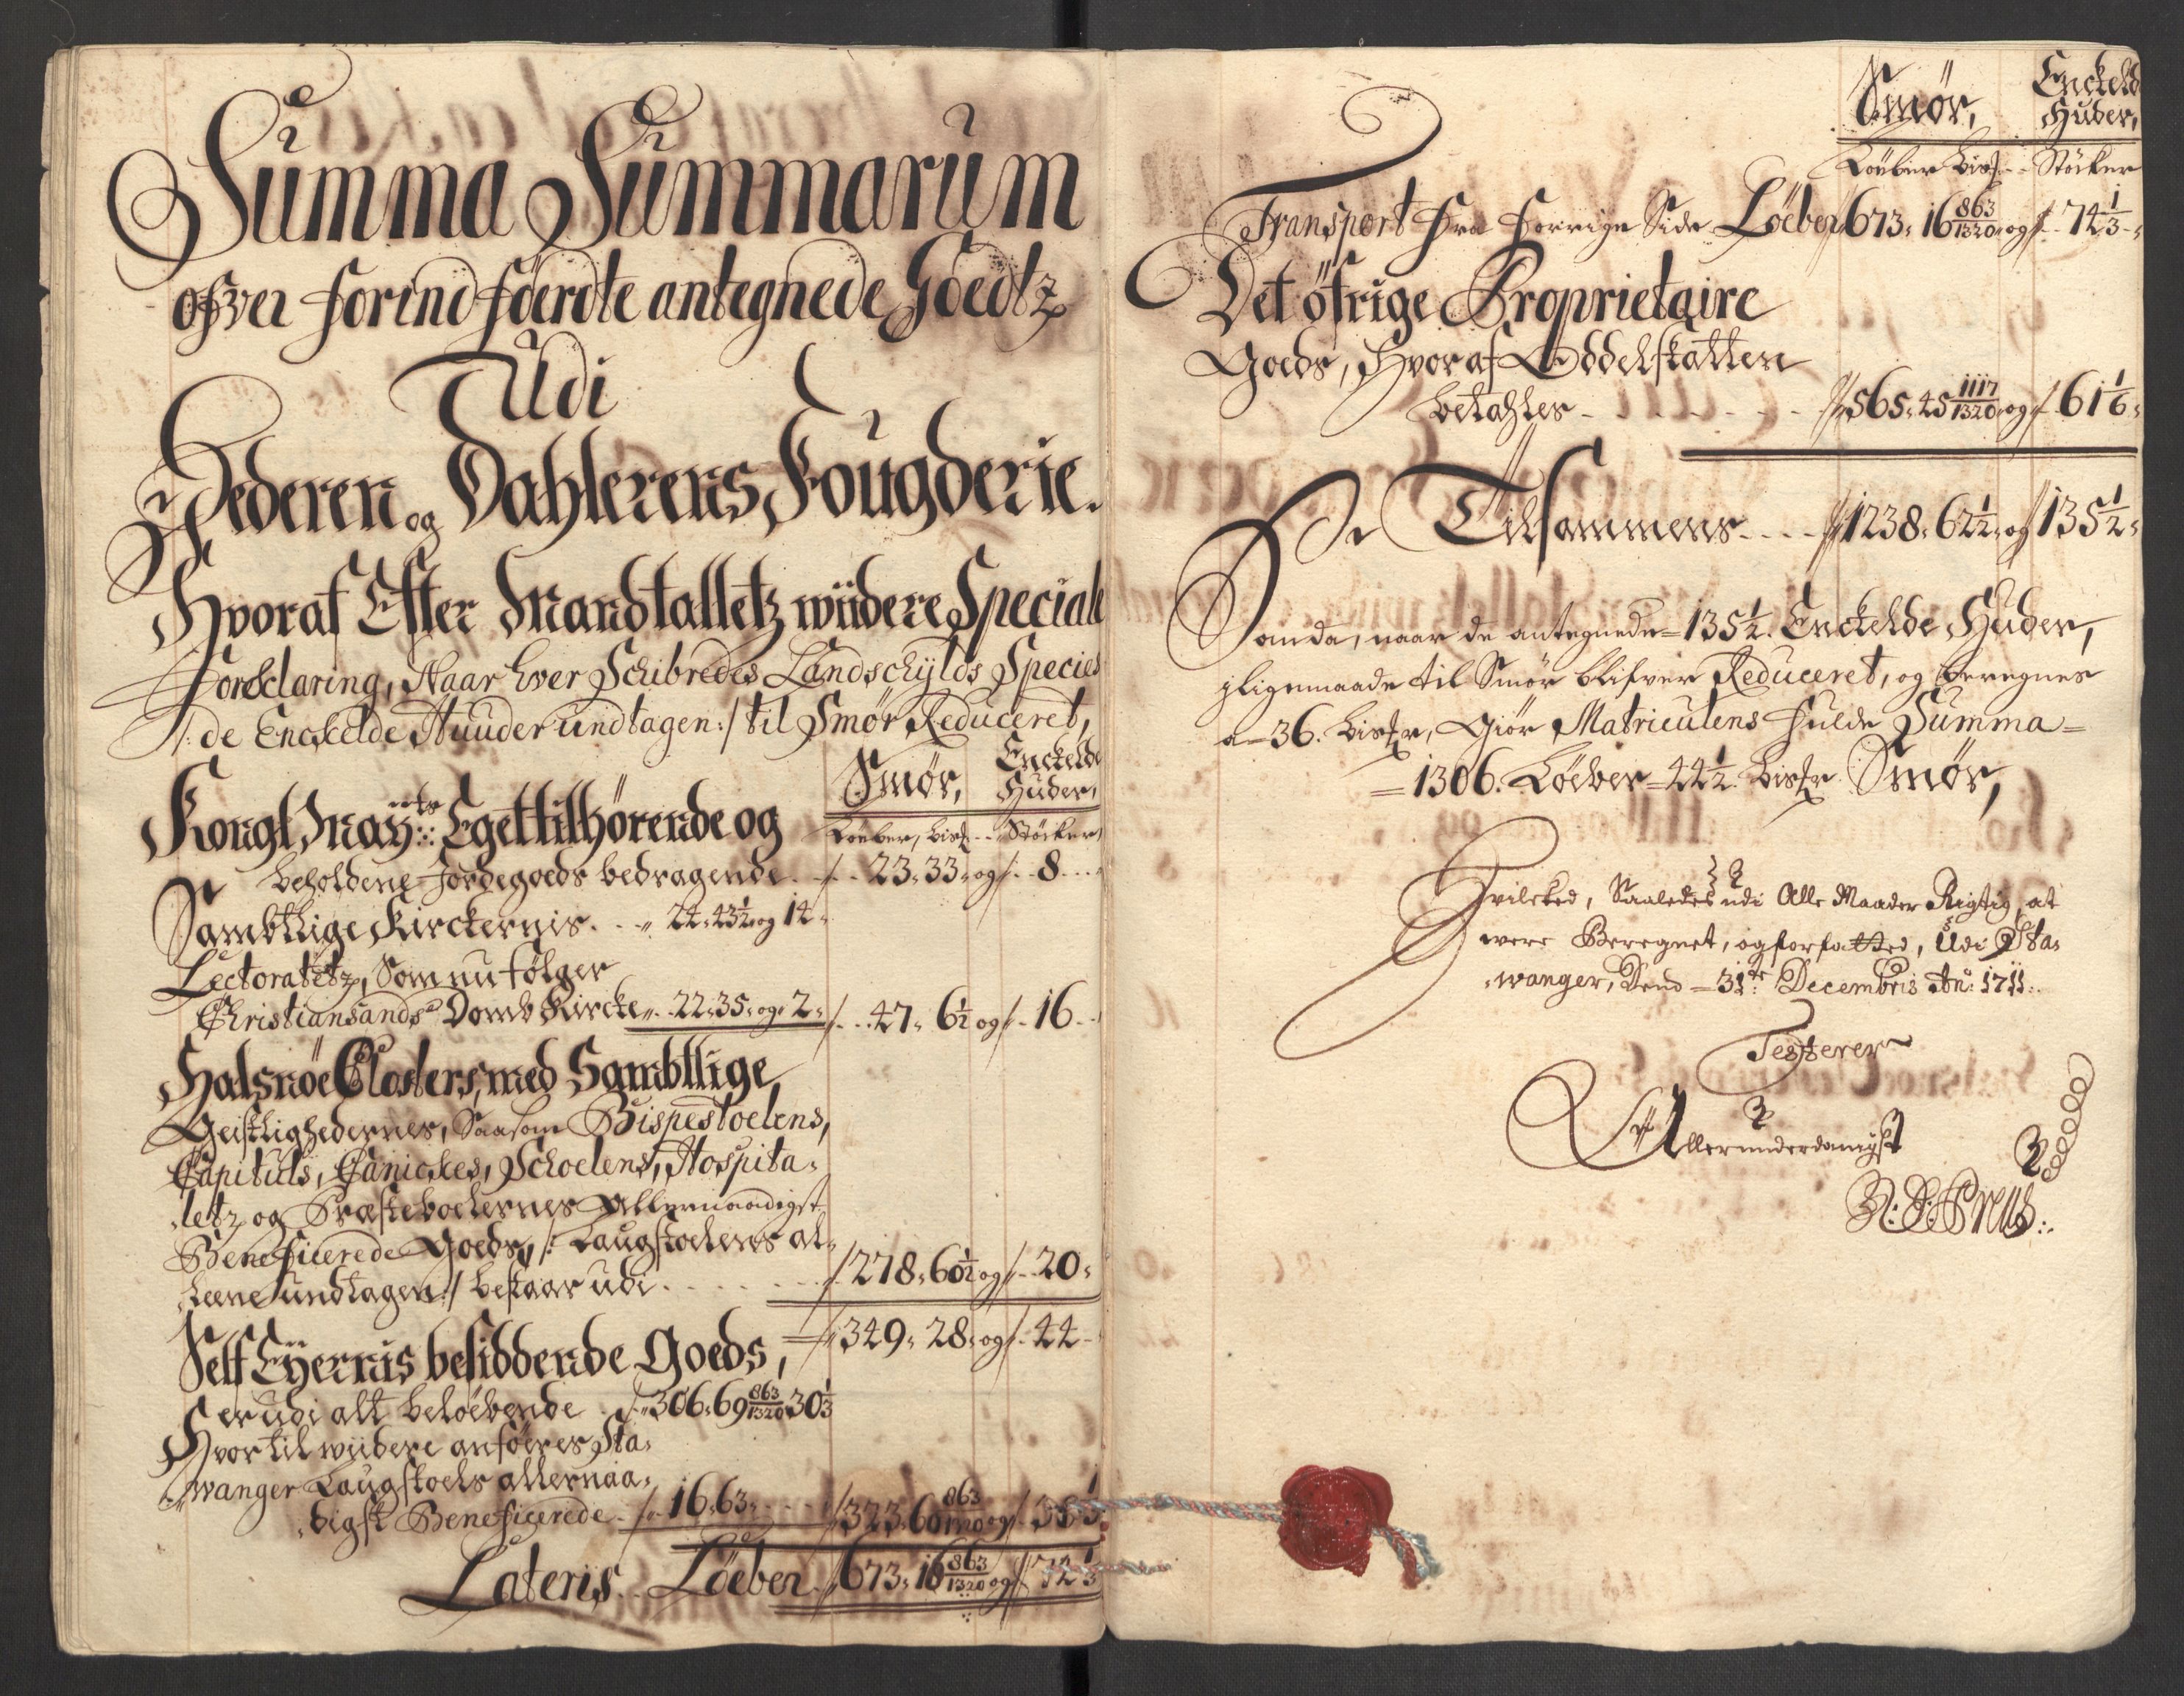 Summa Summarum
ofver forindførdte antegnede Goedtz
Udi
Jederen og Dahlerens Fougderie.
Hvoraf Efter Mandtalletz wiidere Special
Forklaring, Naar hver Schibredes Landschylds Species
/: de Enckelde Huuder undtagen :/ til Smør Reduceret,
Smør, Enckelde Huder,
Løeber, Bisf - - Støcker
Kongl May:ts Eget tilhørende og
beholdene Jordegoeds bedragende - - 23. 33. og - 8 -
Sambtlige Kirckernis. - - 24. 43½ og 14.
Lectoratetz, Som nu følger
Christiansands Domb Kircke - 22. 35. og 2. - 47. 6½ og - 16 -
Halsnøe Closters, med Sambtlige
Geistlighedernes, Saasom Bispestoelens,
Capituls, Canickes, Schoelens, Hospita-
letz og Præsteboelernes Allernaadigst
Beneficerede Goeds, /: Laugstoelens al-
leene undtagen :/ bestaar udi - - 278. 60½ og - 20.
349. 28. og - 44 -
Self Eyernis besiddende Goeds,
Er udi alt beløbende - 306. 69 863/1320 30⅓
Hvortil wiidere anføres Sta-
wanger Laugstoels allernaa-
digst Beneficerede - 16. 63. - - 323. 60 863/1320 og - 30⅓
Lateris - Løeber 673. 16 863/1320 og 74⅓
Smør, Enckeld Huder,
Løeber Bisf - - Støcker
Transport fra forrige Side Løeber 673. 16 863/1320 og 74⅓
Det øfrige Proprietaire
Goeds, Hvoraf Oddelskatten
betahles - - - - - 565. 45 1117/1320 og 61⅙
Er Tilsammens - - - 1238. 62½ og 135½
Som da, naar de antegnede 135½. Enckelde Huder,
jligemaade til Smør blifver Reduceret, og beregnes
a 36. Bisfr, Giør Matriculens fulde Summa
= 1306. Løeber 44½ Bisfr Smør,
Hvilcked, Saaledes udi Alle Maader Rigtig, at
were Beregnet, og forfatted, Udi Sta-
wanger, Dend 31te Decembris Ao: 1711.
Testerer
Allerunderdanigst